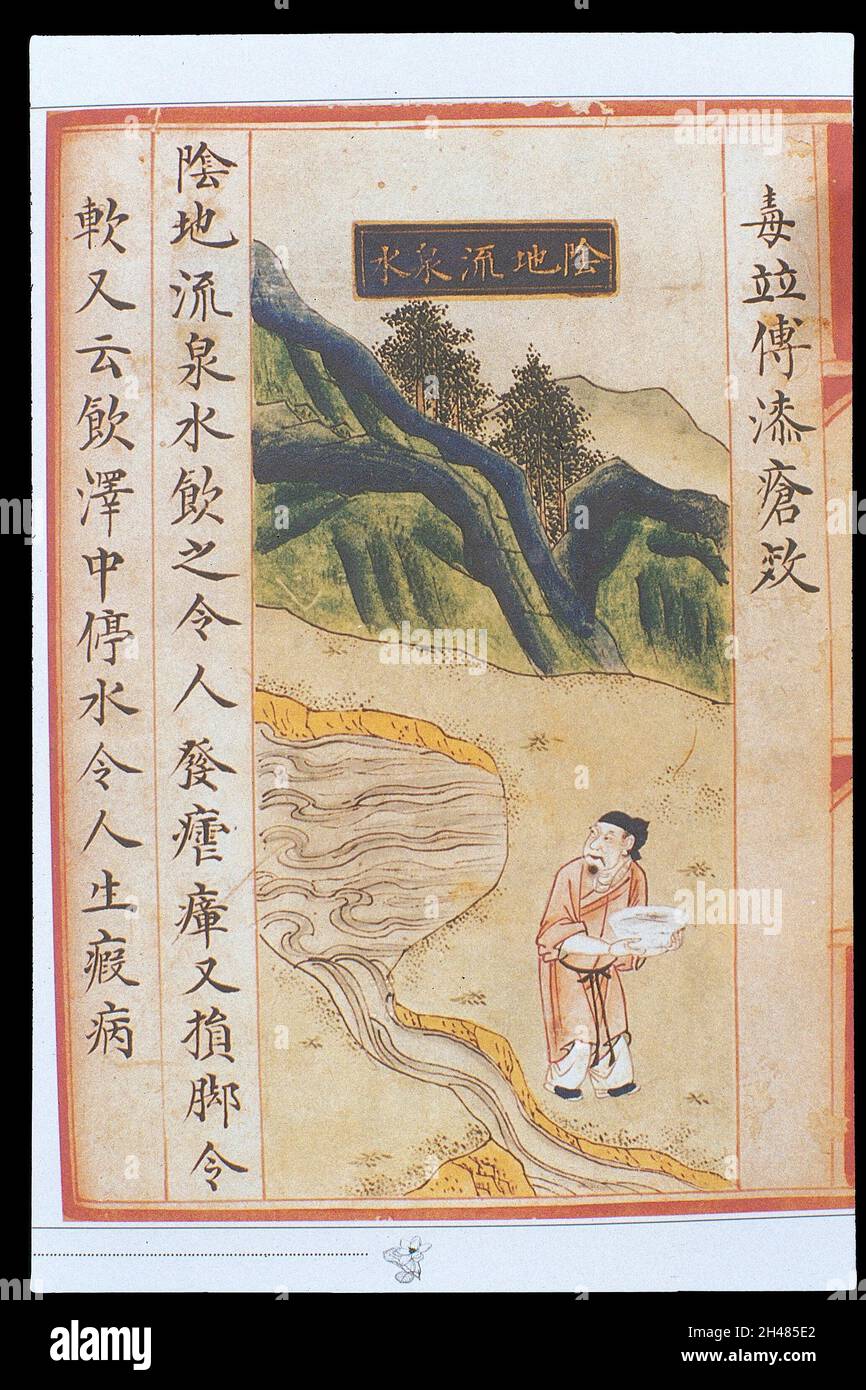 毒竝傅漆瘡效
陰地流泉水
陰地流泉水飲之令人發瘧瘴又損脚令
軟又云飲澤中停水令人生瘕病
alamy
Image ID: 2H485E2
www.alamy.com